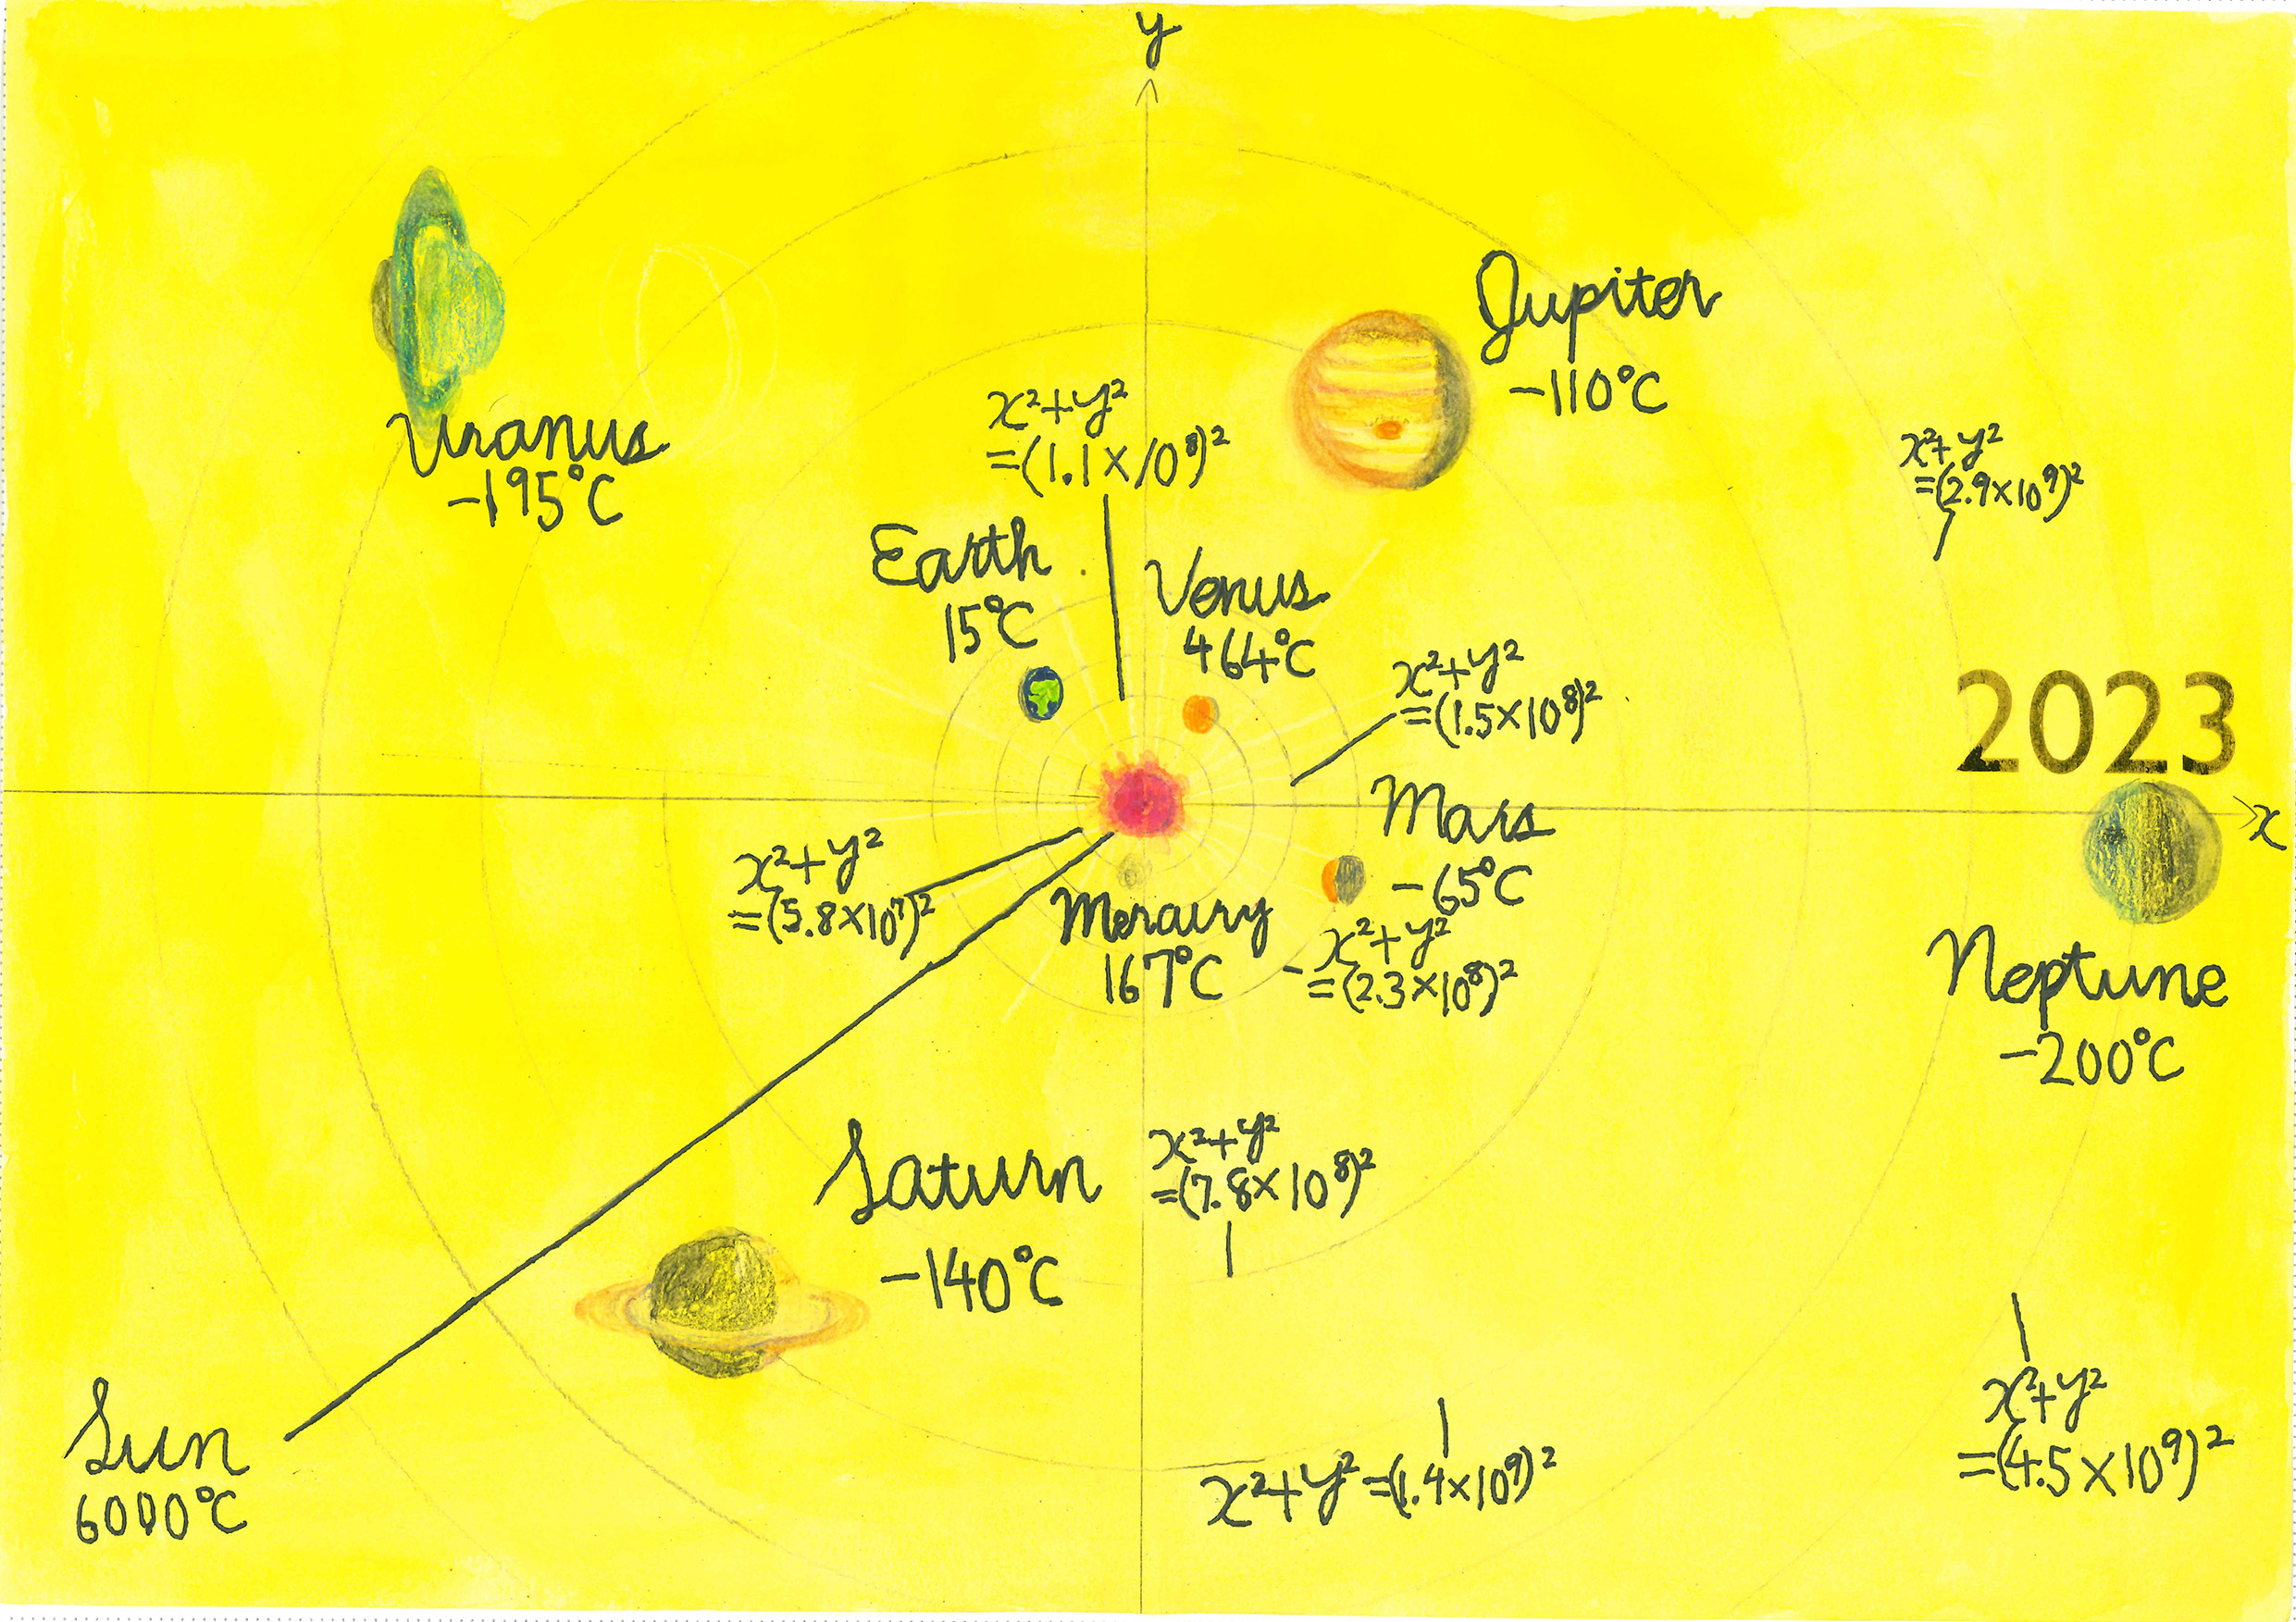 y
Uranus
-195°C
Jupiter
-110°C
x²+y²
=(1.1×10⁸)²
x²+y²
=(2.9×10⁹)²
Earth
15°C
Venus
464°C
x²+y²
=(1.5×10⁸)²
2023
x
Mars
-65°C
x²+y²
=(5.8×10⁷)²
Mercury
167°C
x²+y²
=(2.3×10⁸)²
Neptune
-200°C
Saturn
-140°C
x²+y²
=(7.8×10⁸)²
Sun
6000°C
x²+y²=(1.4×10⁹)²
x²+y²
=(4.5×10⁹)²